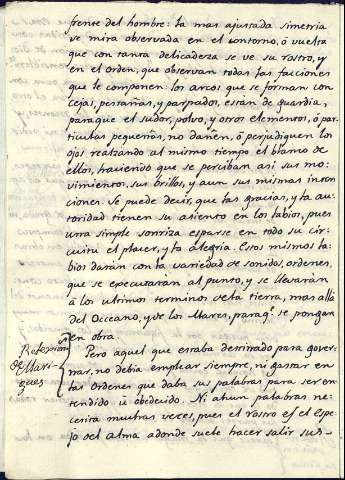 frente del hombre: la mas ajustada simetria
se mira observada en el contorno, ó vuelta
que con tanta delicadeza se ve su rostro, y
en el orden, que observan todas las facciones
que le componen: los arcos que se forman con
cejas, pestañas, y parpados, estan de guardia,
paraque el sudor, polvo, y otros elementos, ó par-
ticulas pequeñas, no dañen, ó perjudiquen los
ojos realzando al mismo tiempo el blanco de
ellos, haviendo que se perciban asi sus mo-
vimientos, sus brillos, y aun sus mismas inten-
ciones. Se puede decir, que las gracias, y la au-
toridad tienen su asiento en los labios, pues
una simple sonriza esparse en todo su cir-
cuitu el placer, y la alegria. Esos mismos la-
bios daran con la variedad de sonidos, ordenes,
que se executaran al punto, y se llevarán
à los ultimos terminos de la tierra, mas allá
del Occeano, y de los Mares, paraq.e se pongan
en obra.
Reflexion
de Mari-
gues
Pero aquel que estaba destinado para gover-
nar, no debia emplear siempre, ni gastar en
las Ordenes que daba sus palabras para ser en-
tendido ù obedecido. Ni ahun palabras ne-
cesita muchas veces, pues el rostro es el espe-
jo del alma adonde suele hacer salir sus-